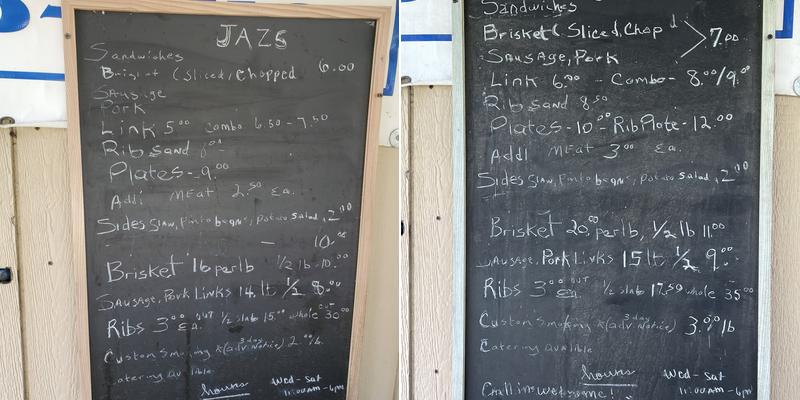 JAZS
Sandwiches
Brisket (Sliced, Chopped 6.00
Sausage
Pork
Link 5.00 combo 6.50 - 7.50
Rib Sand
Plates - 9.00
Addl MEAT 2.50 Ea.
Sides Slaw, Pinto beans, Potato Salad, 2.00
- 10.00
Brisket 16 per lb 1/2 lb - 10.00
Sausage, Pork Links 14 lb 1/2 8.00
Ribs 3.00 Ea. CUT 1/2 slab 15.00 whole 30.00
Custom Smoking (3 day adv. Notice) 2.00 lb.
Catering Avalible
hours
Wed - Sat
11:00 AM - 6 pm
Sandwiches
Brisket (Sliced, Chop'd
Sausage, Pork 7.00
Link 6.00 - Combo - 8.00/9.00
Rib Sand 8.50
Plates - 10.00 - Rib Plate - 12.00
Addl MEAT 3.00 Ea.
Sides Slaw, Pinto beans, Potato Salad, 2.00
Brisket 20.00 per lb, 1/2 lb 11.00
Sausage, Pork Links 15 lb 1/2 9.00
Ribs 3.00 Ea. CUT 1/2 slab 17.50 whole 35.00
Custom Smoking (3 day adv. Notice) 3.00 lb
Catering Avalible
hours
Wed - Sat
11:00 AM - 6 pm